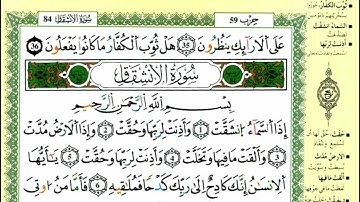 سُورَةُ الانشِقَاقِ 84
حِزْب 59
عَلَى الْأَرَآئِكِ يَنظُرُونَ 35 هَلْ ثُوِّبَ الْكُفَّارُ مَا كَانُوا يَفْعَلُونَ 36
سُورَةُ الْإِنْشِقَاقِ
بِسْمِ اللَّهِ الرَّحْمَنِ الرَّحِيمِ
إِذَا السَّمَآءُ انشَقَّتْ 1 وَأَذِنَتْ لِرَبِّهَا وَحُقَّتْ 2 وَإِذَا الْأَرْضُ مُدَّتْ
3 وَأَلْقَتْ مَا فِيهَا وَتَخَلَّتْ 4 وَأَذِنَتْ لِرَبِّهَا وَحُقَّتْ 5 يَٰٓأَيُّهَا
الْإِنسَٰنُ إِنَّكَ كَادِحٌ إِلَىٰ رَبِّكَ كَدْحًا فَمُلَٰقِيهِ 6 فَأَمَّا مَنْ أُوتِيَ
ثُوِّبَ الْكُفَّارُ
السَّمَاءُ انشَقَّتْ
أَذِنَتْ لِرَبِّهَا
حُقَّتْ
الْأَرْضُ مُدَّتْ
أَلْقَتْ مَا فِيهَا